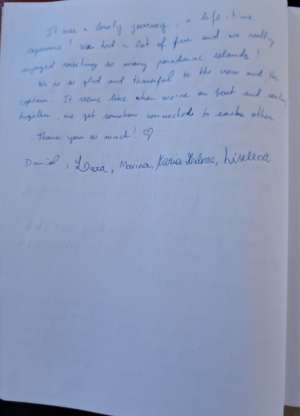 It was a lovely journey, a life time
experience! We had a lot of fun and we really
enjoyed visiting so many paradise islands!
We are so glad and thankful to the crew and the
captain. It seems like when we're on boat and
together, we get somehow connected to each other.
Thank you so much! ♡
Daniel, Dora, Marina,